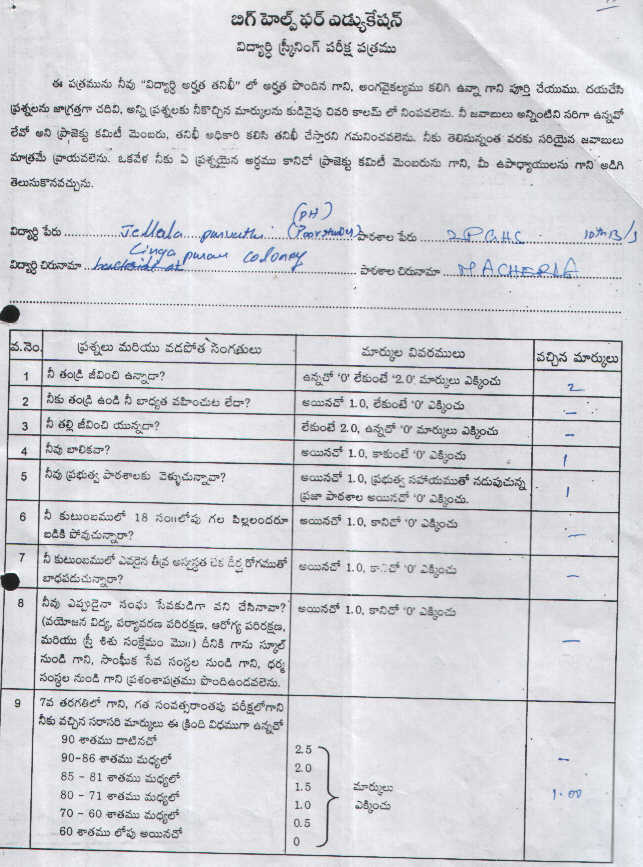 బిగ్ హెల్ప్ ఫర్ ఎడ్యుకేషన్
విద్యార్ధి స్క్రీనింగ్ పరీక్ష పత్రము
ఈ పత్రమును నీవు "విద్యార్ధి అర్హత తనిఖీ" లో అర్హత పొందిన గాని, అంగవైకల్యము కలిగి ఉన్నా గాని పూర్తి చేయుము. దయచేసి
ప్రశ్నలను జాగ్రత్తగా చదివి, అన్ని ప్రశ్నలకు నీకొచ్చిన మార్కులను కుడివైపు చివరి కాలమ్ లో నింపవలెను. నీ జవాబులు అన్నింటిని సరిగా ఉన్నవో
లేవో అని ప్రాజెక్టు కమిటీ మెంబరు, తనిఖీ అధికారి కలిసి తనిఖీ చేస్తారని గమనించవలెను. నీకు తెలిసున్నంత వరకు సరియైన జవాబులు
మాత్రమే వ్రాయవలెను. ఒకవేళ నీకు ఏ ప్రశ్నయైన అర్ధము కానిచో ప్రాజెక్టు కమిటీ మెంబరును గాని, మీ ఉపాధ్యాయులను గాని అడిగి
తెలుసుకొనవచ్చును.
(PH)
విద్యార్ధి పేరు Jellala parvathi (Poor study) పాఠశాల పేరు ZPGHS 10th B/S
విద్యార్ధి చిరునామా Linga puram colony పాఠశాల చిరునామా MACHERLA
వ.నెం. ప్రశ్నలు మరియు వడపోత సంగతులు మార్కుల వివరములు వచ్చిన మార్కులు
1 నీ తండ్రి జీవించి ఉన్నాడా? ఉన్నచో '0' లేకుంటే '2.0' మార్కులు ఎక్కించు 2
2 నీకు తండ్రి ఉండి నీ బాధ్యత వహించుట లేదా? అయినచో 1.0, లేకుంటే '0' ఎక్కించు –
3 నీ తల్లి జీవించి యున్నదా? లేకుంటే 2.0, ఉన్నచో '0' మార్కులు ఎక్కించు –
4 నీవు బాలికవా? అయినచో 1.0, కాకుంటే '0' ఎక్కించు 1
5 నీవు ప్రభుత్వ పాఠశాలకు వెళ్ళుచున్నావా? అయినచో 1.0, ప్రభుత్వ సహాయముతో నడుపుచున్న 1
ప్రజా పాఠశాల అయినచో '0' ఎక్కించు.
6 నీ కుటుంబములో 18 సం॥లోపు గల పిల్లలందరూ అయినచో 1.0, కానిచో '0' ఎక్కించు –
బడికి పోవుచున్నారా?
7 నీ కుటుంబములో ఎవరైన తీవ్ర అస్వస్థత లేక దీర్ఘ రోగముతో అయినచో 1.0, కానిచో '0' ఎక్కించు –
బాధపడుచున్నారా?
8 నీవు ఎప్పుడైనా సంఘ సేవకుడిగా పని చేసినావా? అయినచో 1.0, కానిచో '0' ఎక్కించు –
(వయోజన విద్య, పర్యావరణ పరిరక్షణ, ఆరోగ్య పరిరక్షణ,
మరియు స్త్రీ శిశు సంక్షేమం మొ॥) దీనికి గాను స్కూల్
నుండి గాని, సాంఘీక సేవ సంస్థల నుండి గాని, ధర్మ
సంస్థల నుండి గాని ప్రశంసాపత్రము పొందిఉండవలెను.
9 7వ తరగతిలో గాని, గత సంవత్సరాంతపు పరీక్షలోగాని
నీకు వచ్చిన సరాసరి మార్కులు ఈ క్రింది విధముగా ఉన్నచో
90 శాతము దాటినచో 2.5
90-86 శాతము మధ్యలో 2.0 –
85 - 81 శాతము మధ్యలో 1.5 మార్కులు
80 - 71 శాతము మధ్యలో 1.0 ఎక్కించు 1.00
70 - 60 శాతము మధ్యలో 0.5
60 శాతము లోపు అయినచో 0